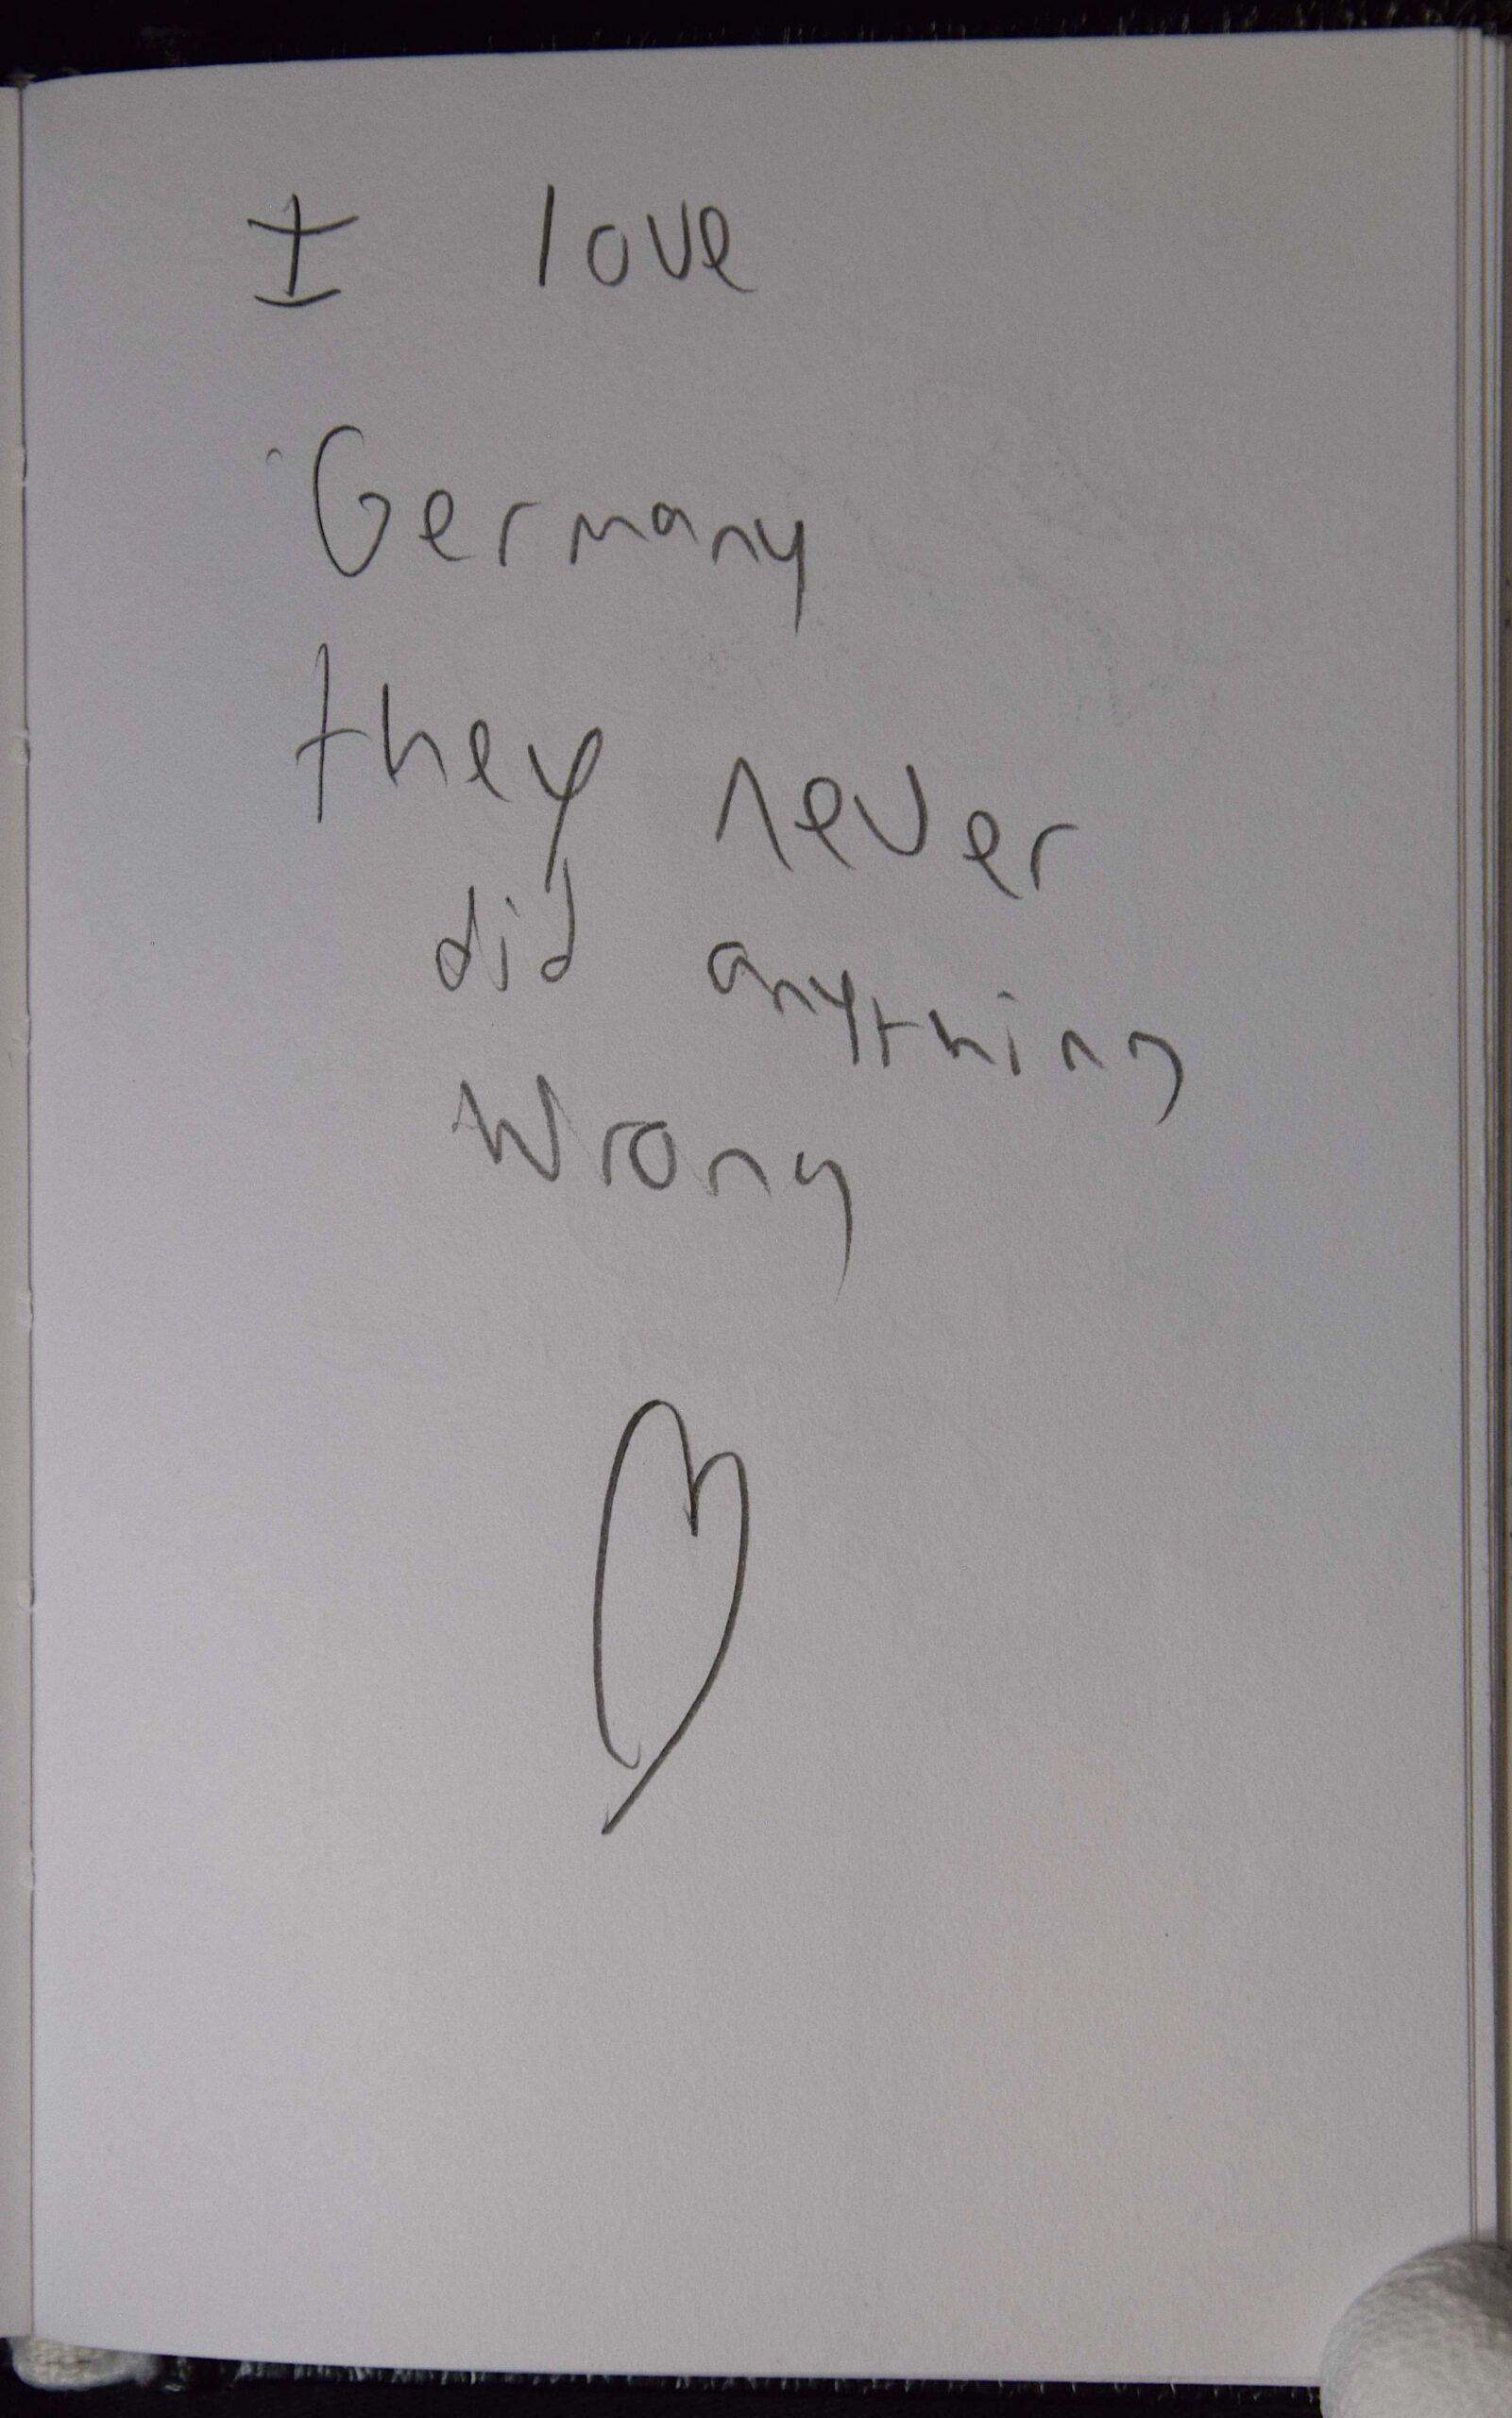 I love
Germany
they never
did anything
Wrong